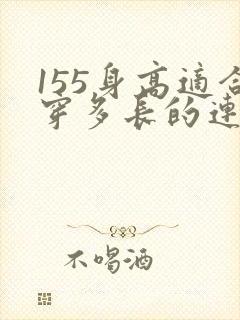 155身高適合
穿多長的連
不喝酒